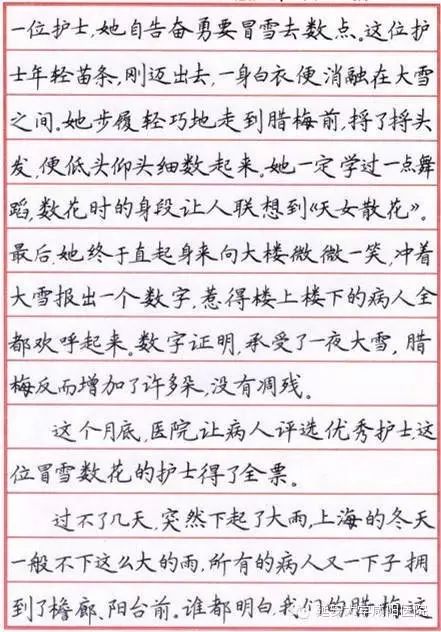 一位护士,她自告奋勇要冒雪去数点。这位护
士年轻苗条,刚迈出去,一身白衣便消融在大雪
之间。她步履轻巧地走到腊梅前,捋了捋头
发,便低头仰头细数起来。她一定学过一点舞
蹈,数花时的身段让人联想到《天女散花》。
最后,她终于直起身来向大楼微微一笑,冲着
大雪报出一个数字,惹得楼上楼下的病人全
都欢呼起来。数字证明,承受了一夜大雪,腊
梅反而增加了许多朵,没有凋残。
这个月底,医院让病人评选优秀护士,这
位冒雪数花的护士得了全票。
过不了几天,突然下起了大雨,上海的冬天
一般不下这么大的雨,所有的病人又一下子拥
到了檐廊、阳台前。谁都明白,我们的腊梅这
延安大学咸阳医院